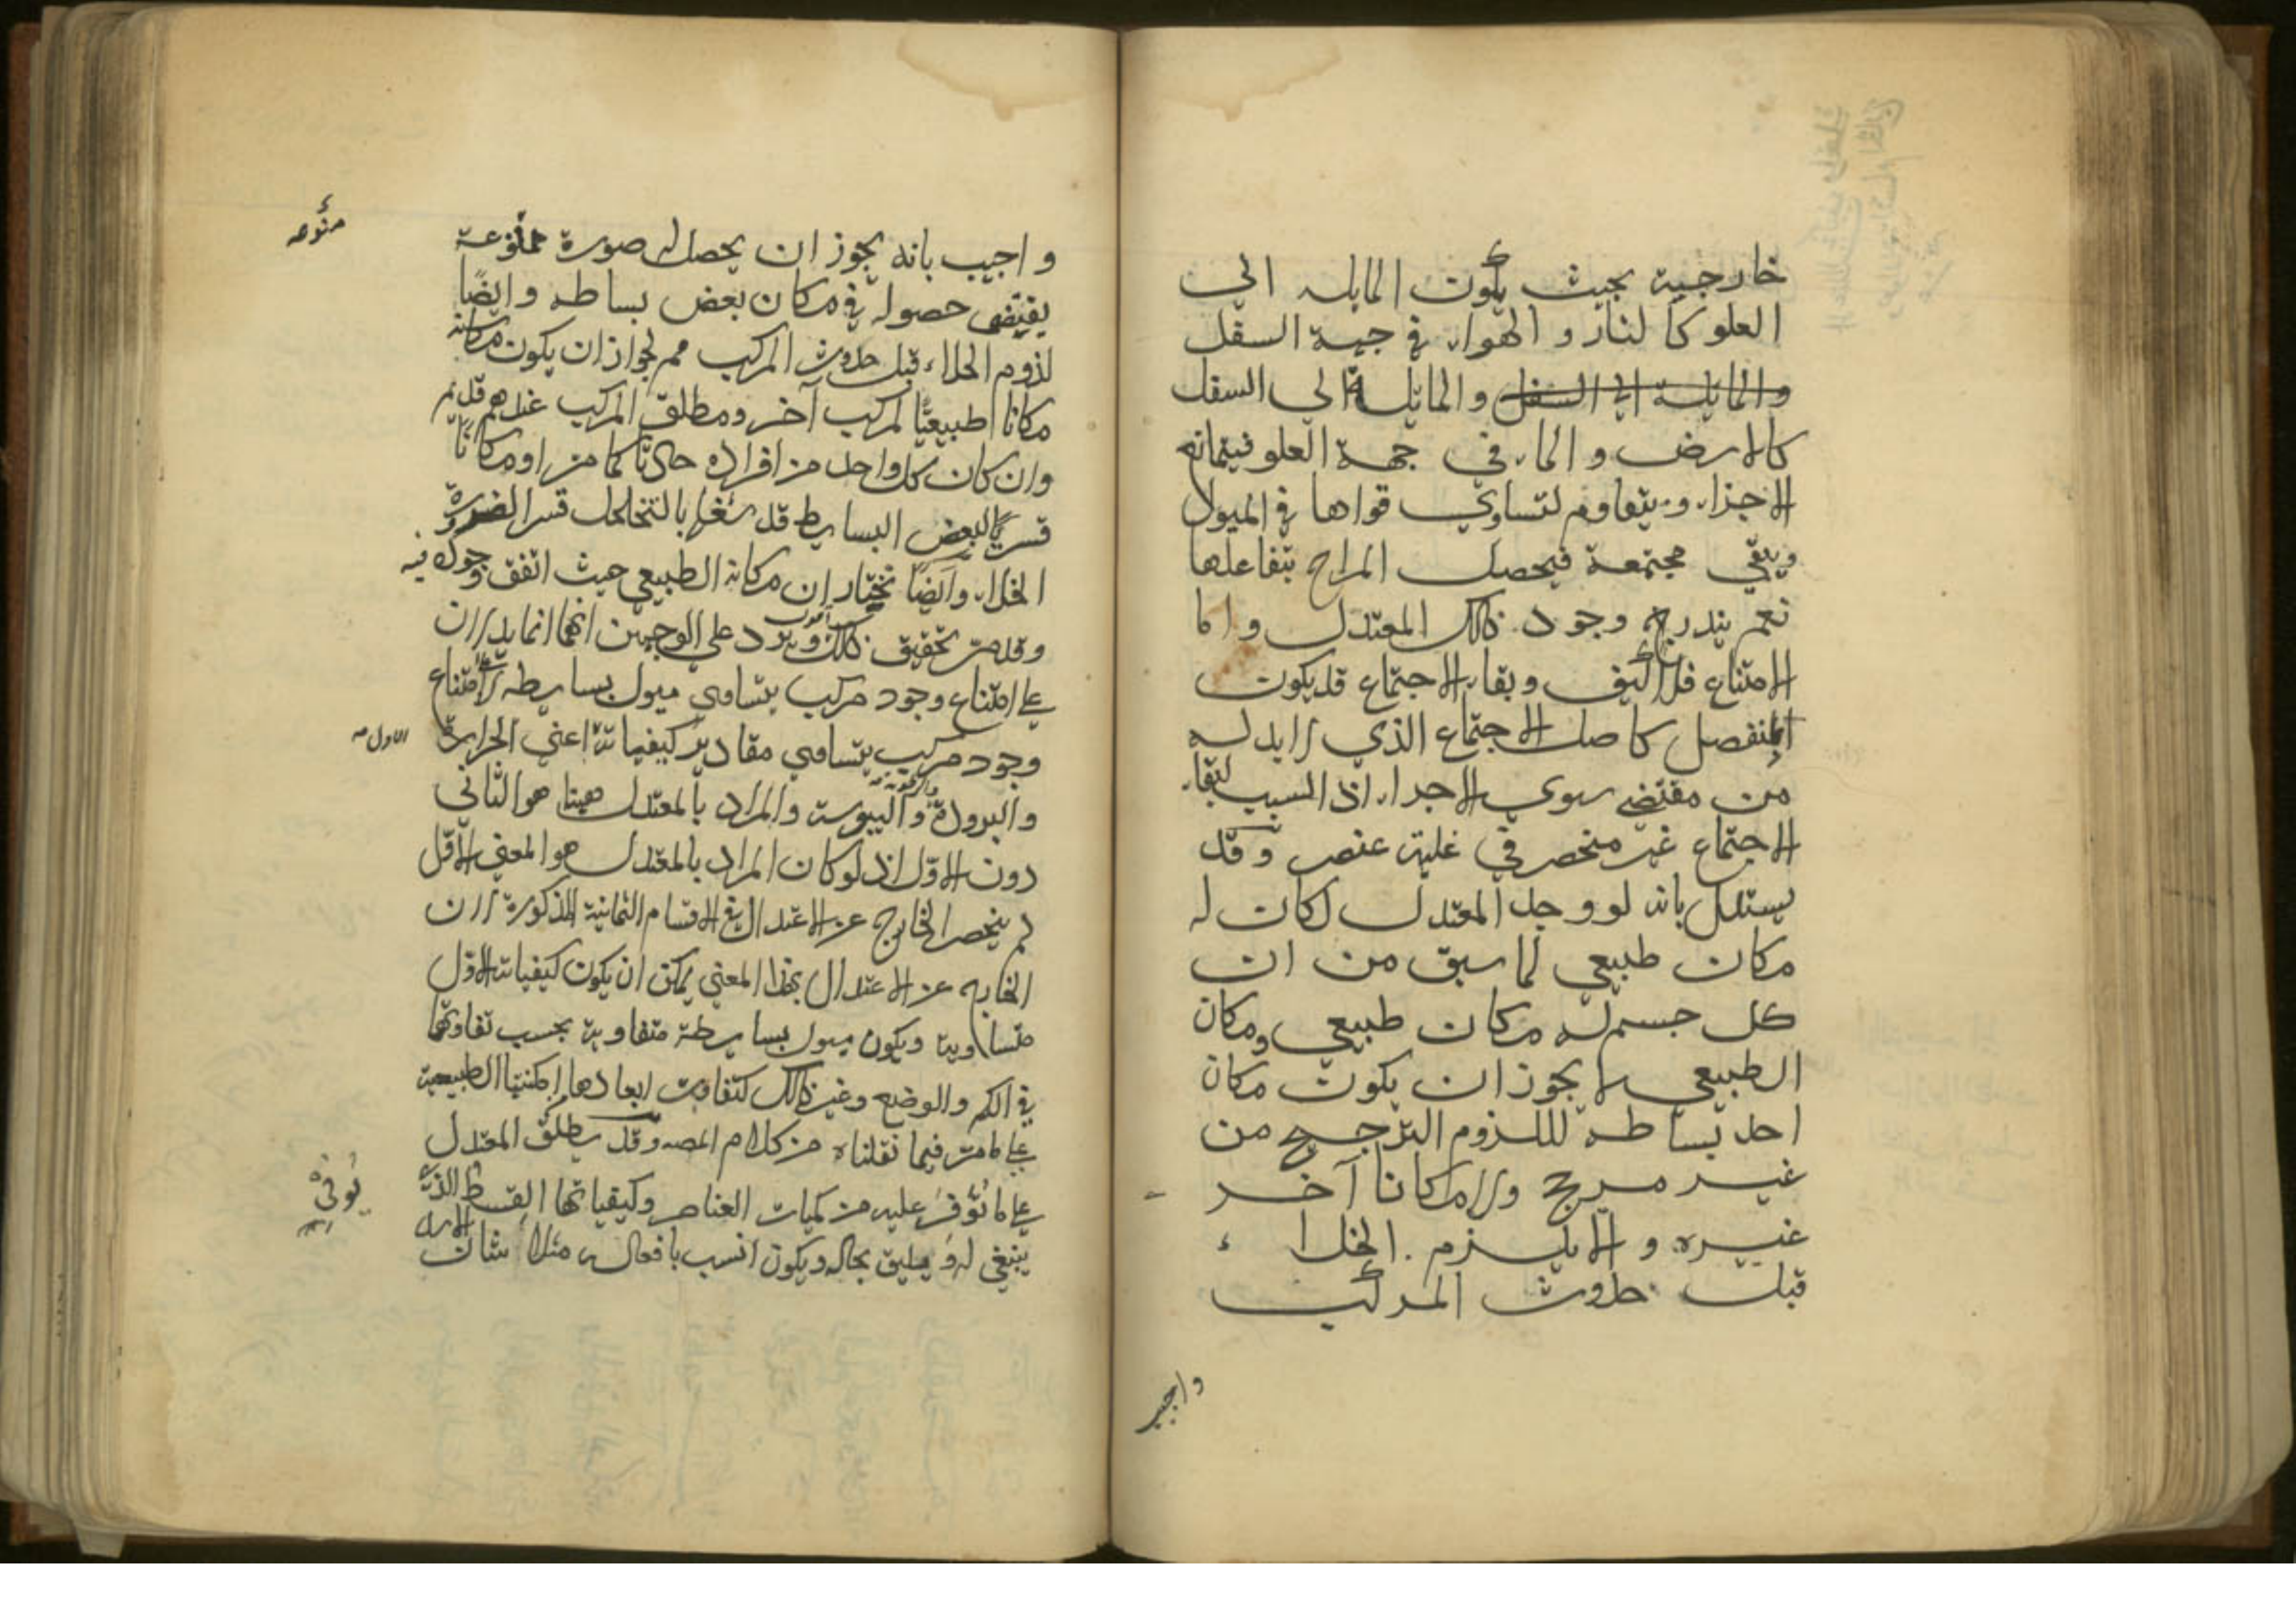 خارجية بحيث يكون المايله الى
العلو كالنار و الهواء في جهة السفل
والمايلة الى السفل والمايلة الى السفل
كالارض و الماء في جهة العلو فيتمانع
الاجزاء ويتقاوم لتساوي قواها في الميول
ويبقي مجتمعة فيحصل المزاج بتفاعلها
نعم يندر وجود ذلك المعتدل و اما
الامتناع فلا كيف وبقاء الاجتماع قد يكون
لمنفصل كاصل الاجتماع الذي لابد له
من مقتض سوي الاجزاء اذ السبب لبقاء
الاجتماع غير منحصر في غلبة عنصر وقد
يستدل بانه لو وجد المعتدل لكان له
مكان طبيعي لما سبق من ان
كل جسم له مكان طبيعي ومكان
الطبيعي لا يجوز ان يكون مكان
احد بسائطه للزوم الترجيح من
غير مرجح ولا مكانا آخر
غيره و الا يلزم الخلاء
قبل حدوث المركب
واجيب
واجيب بانه يجوز ان يحصل له صورة منوعة
منوعه
يقتضي حصوله في مكان بعض بسائطه وايضًا
لزوم الخلاء قبل حدوث المركب مم لجواز ان يكون مكانه
مكانا طبيعيًّا لمركب آخر ومطلق المركب عندهم قديم
وان كان كل واحد من افراده حادثا كما مر او مكانًا
قسريًّا لبعض البسائط قد شغلها بالتخلخل قسر الضرورة
الخلاء وايضًا نختار ان مكانه الطبيعي حيث اتفق وجوده فيه
وقد مر تحقيق ذلك ويرد على الوجهين انهما انما يدلان
على امتناع وجود مركب يتساوي ميول بسايطه لا على امتناع
وجود مركب يتساوي مقادير كيفياته اعني الحرارة
الاول
والبرودة والرطوبة واليبوسة والمراد بالمعتدل ههنا هو الثاني
دون الاوّل اذ لو كان المراد بالمعتدل هو المعني الاوّل
لم ينحصر الخارج عن الاعتدال في الاقسام الثمانية المذكورة لان
الخارج عن الاعتدال بهذا المعني يمكن ان يكون كيفياته الاول
متساوية ويكون ميول بسايطه متفاوتة بحسب تفاوتها
في الكم والوضع وغير ذلك كتفاوت ابعادها امكنتها الطبيعية
على ما مر فيما نقلناه من كلام المصـ وقد يطلق المعتدل
على ما توفر عليه من كميات العناصر وكيفياتها القسط الذي
توفر
ينبغي له و يليق بحاله ويكون انسب بافعاله مثلا شان الاسد